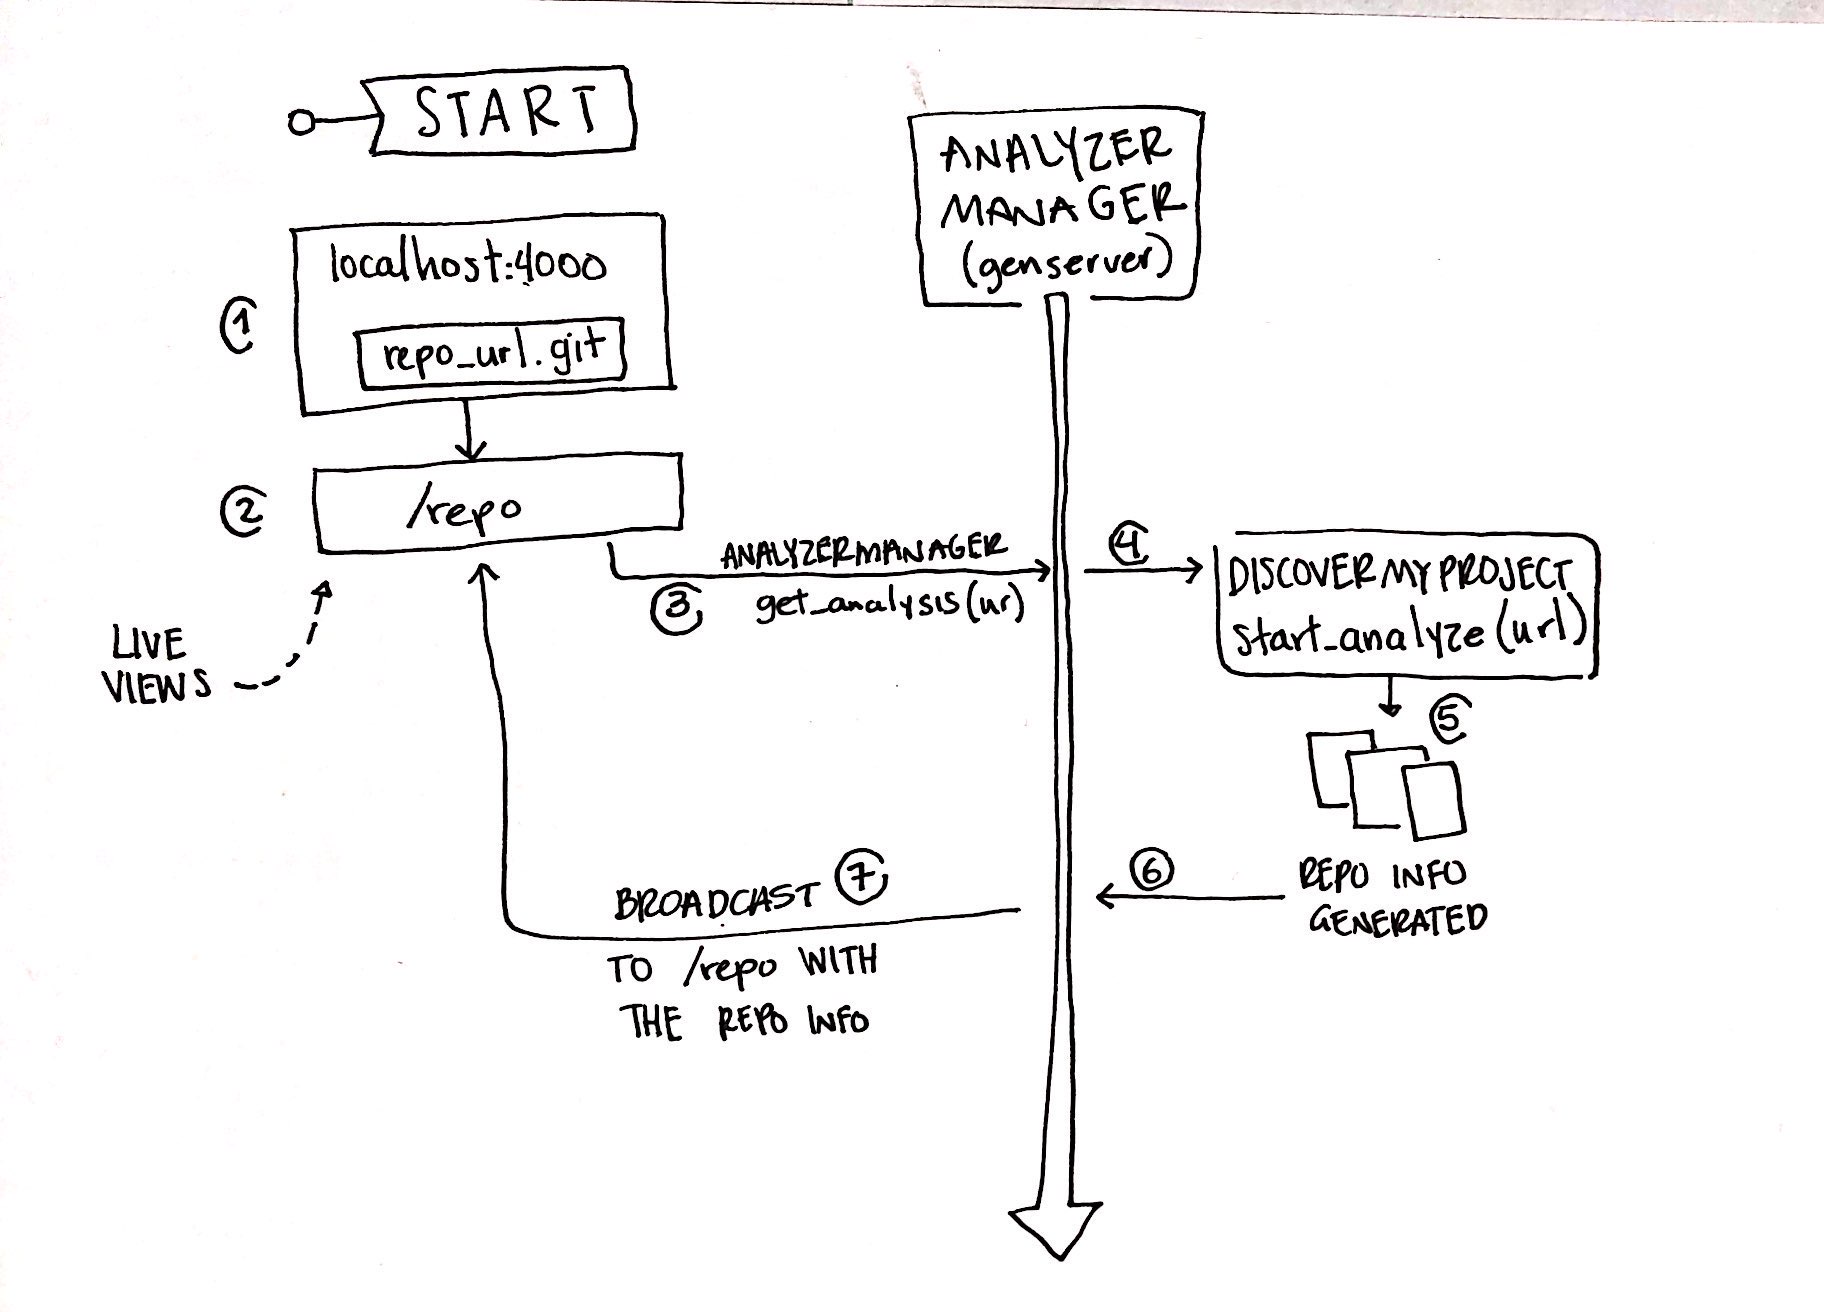 START
ANALYZER
MANAGER
(genserver)
1
localhost:4000
repo_url.git
2
/repo
ANALYZERMANAGER
3
get_analysis(ur)
4
DISCOVERMYPROJECT
start_analyze(url)
LIVE
VIEWS
5
REPO INFO
GENERATED
6
BROADCAST 7
TO /repo WITH
THE REPO INFO